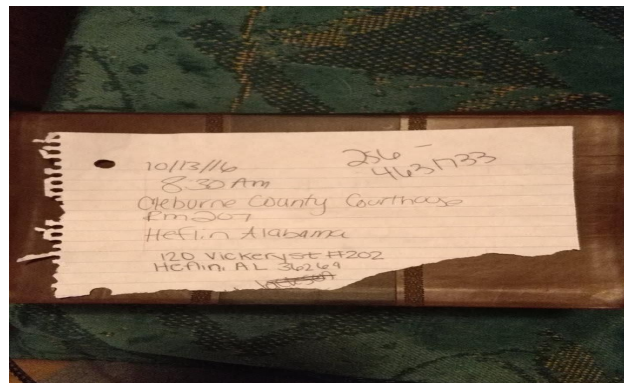 10/13/16
256-
4631733
8:30 Am
Cleburne County Courthouse
Rm 207
Heflin Alabama
120 Vickery st #202
Heflin, AL 36269